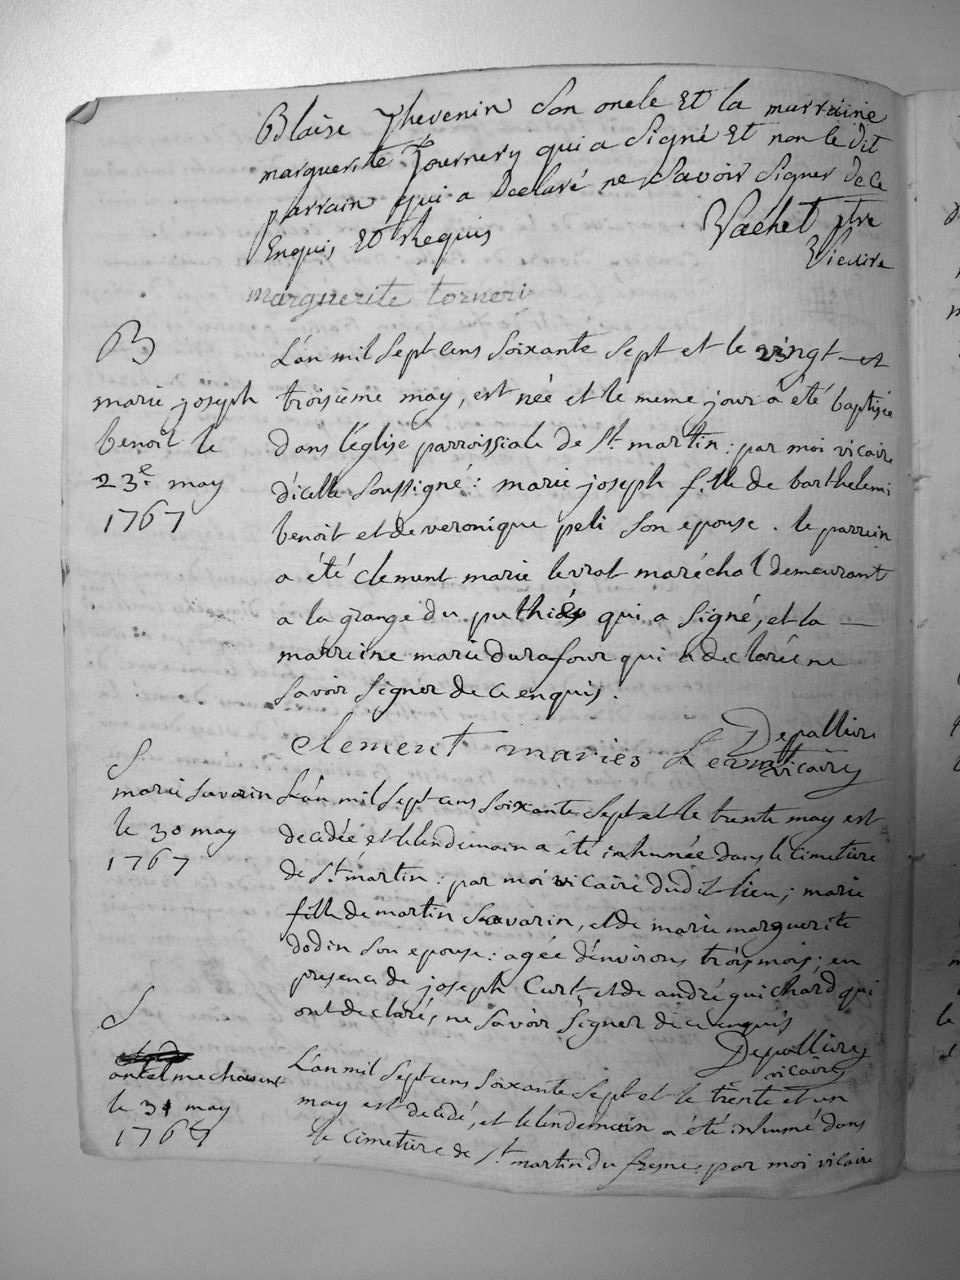 Blaise Thevenin son oncle Et la marraine
marguerite Tournery qui a Signé Et non le dit
parrain qui a declaré ne Savoir Signer de ce
Enquis Et Requis
Vachet ptre
Vicaire
marguerite torneri
B
marie joseph
benoit le
23e. may
1767
L'an mil Sept cens Soixante Sept et le vingt et
troisième may, est née et le meme jour a été baptisée
dans l'église parroissiale de St. martin : par moi vicaire
d'icelle Soussigné : marie joseph fille de barthelemi
benoit et de veronique peli Son epouse. le parrein
a été clement marie levrat maréchal demeurant
a la grange du qui a Signé, et la
marreine marie durafour qui a declaré ne
Savoir Signer de ce enquis.
Clement maries Levrat
Depallier
vicaire
S
marie Savarin
le 30 may
1767
L'an mil Sept cens Soixante Sept et le trente may est
decedée et le lendemain a été inhumée dans le Cimetiere
de St. martin : par moi vicaire dudit lieu ; marie
fille de martin Savarin, et de marie marguerite
dodin Son epouse : agée d'environs trois mois : en
presence de joseph Curt, et de andré guichard qui
ont declaré, ne Savoir Signer de ce enquis
Depallier
vicaire
S
antelme
le 31 may
1767
L'an mil Sept cens Soixante Sept et le trente et un
may est decedé, et le lendemain a été inhumé dans
le Cimetiere de St. martin du fresne, par moi vicaire